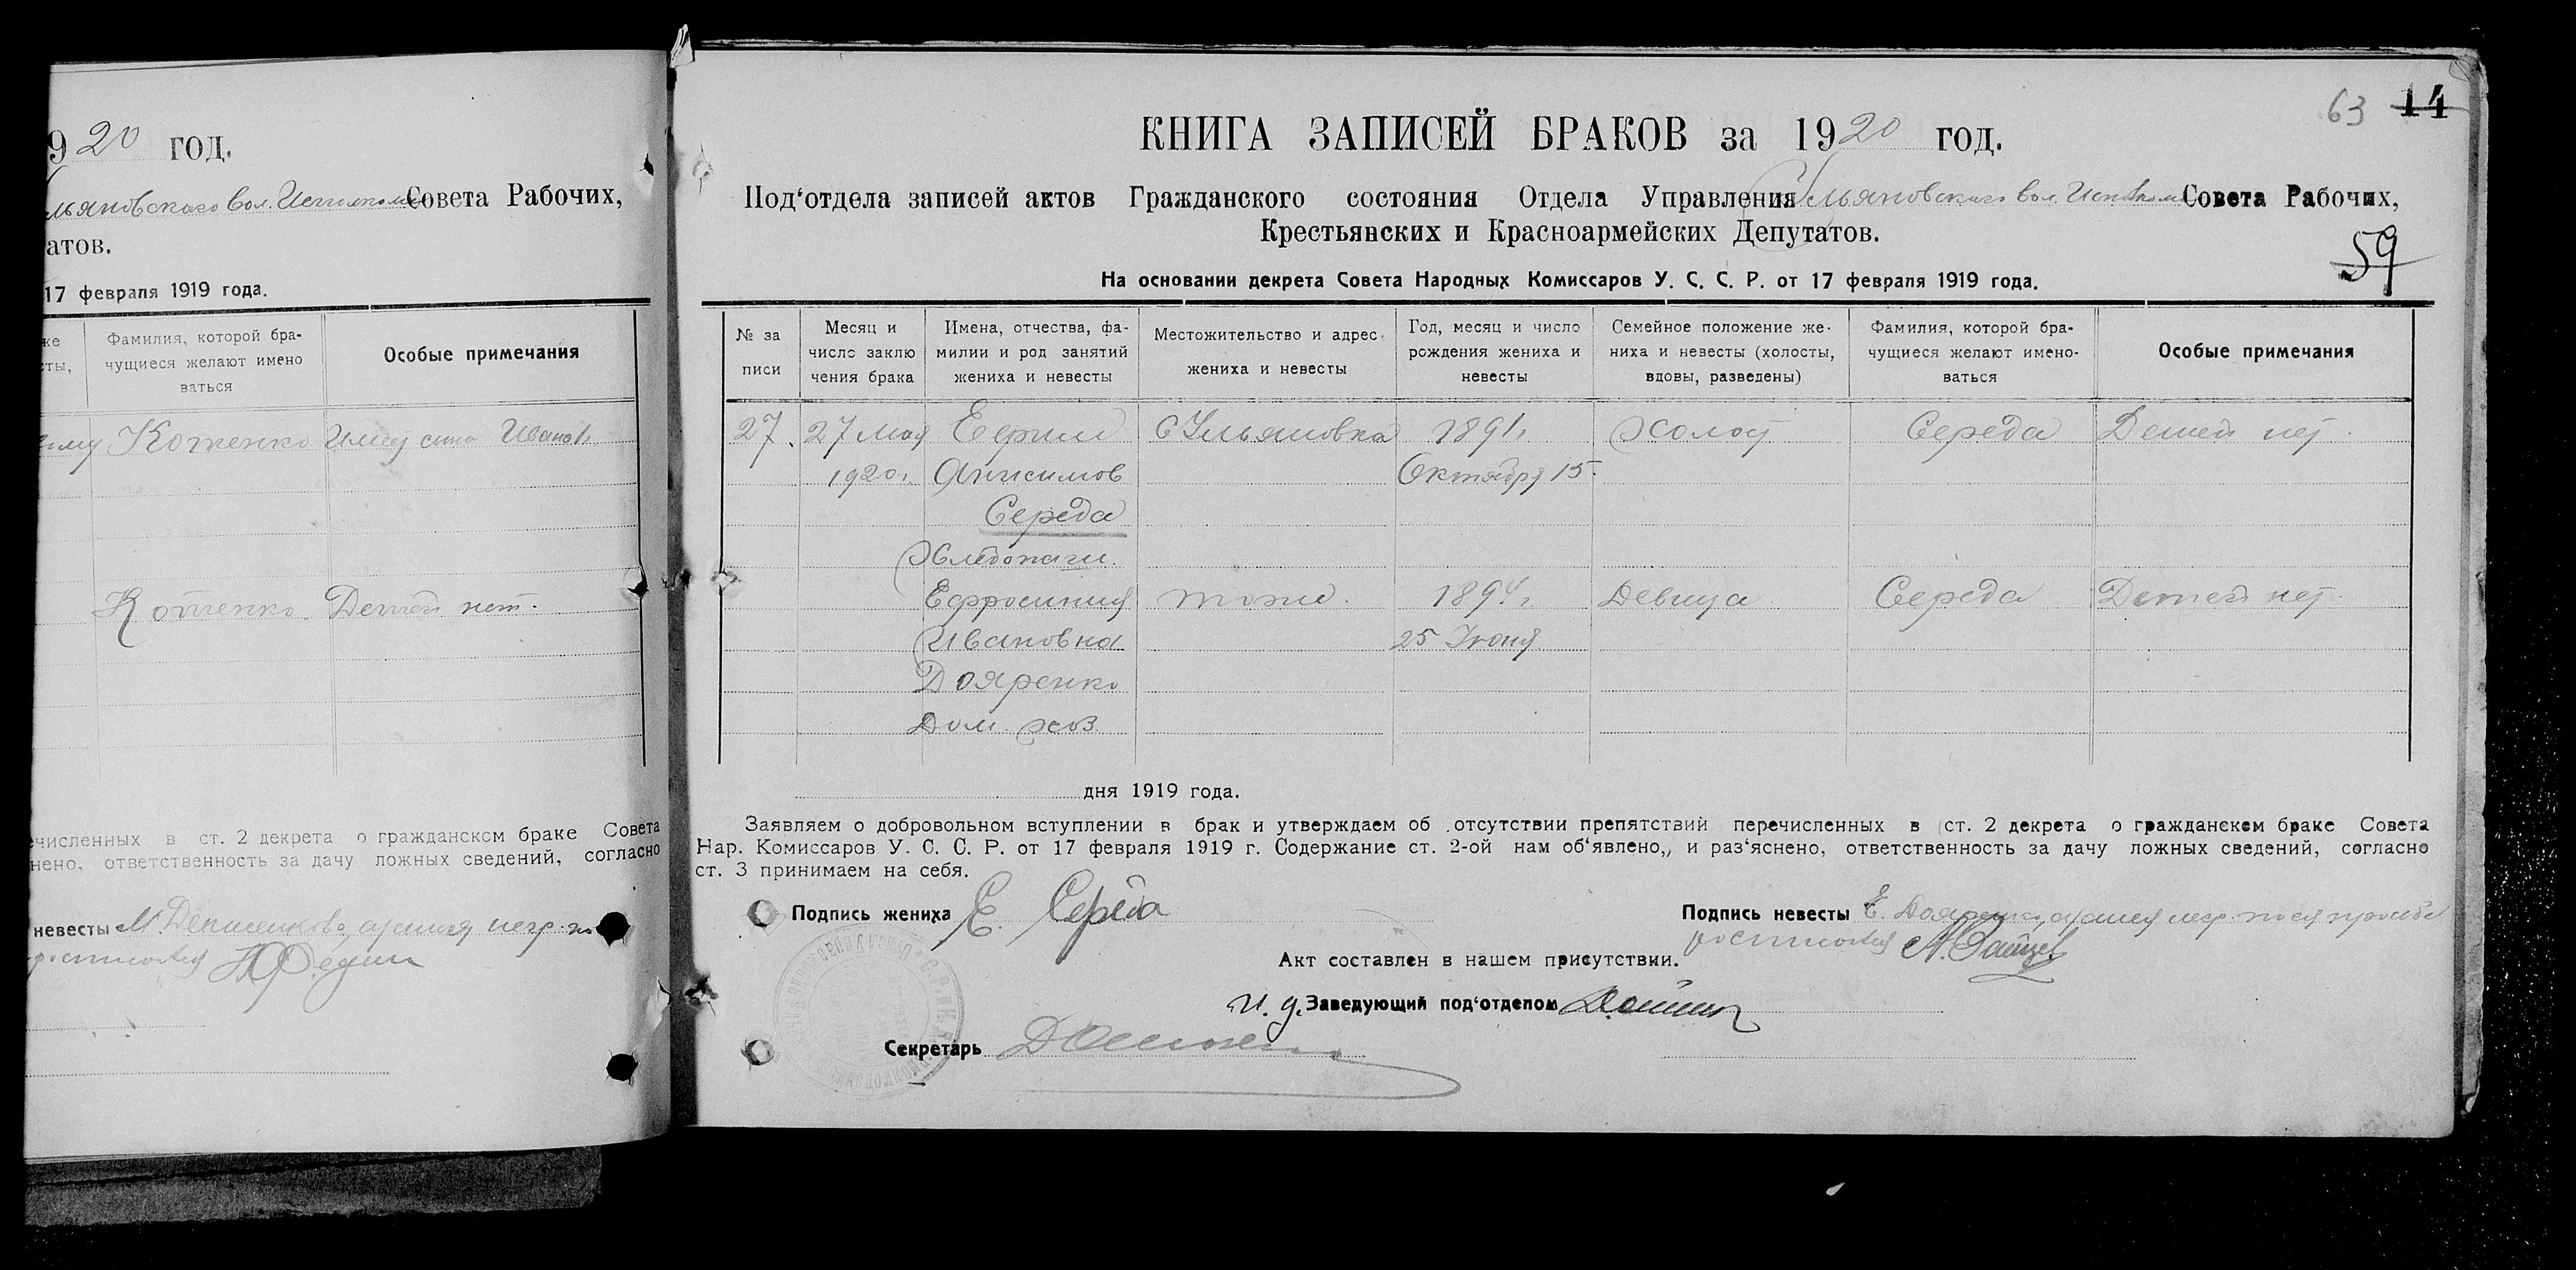 9 20 год.
льяновского вол. Исполкома Совета Рабочих,
атов.
17 февраля 1919 года.
же
сты,
Фамилия, которой бра-
чущиеся желают имено
ваться
Особые примечания
Котенко Имеет сына Ивана
Котенко Детей нет.
ечисленных в ст. 2 декрета о гражданском браке Совета
нено, ответственность за дачу ложных сведений, согласно
невесты М.
63 14
КНИГА ЗАПИСЕЙ БРАКОВ за 1920 год.
Под'отдела записей актов Гражданского состояния Отдела Управления Ульяновского вол. Исполкома Совета Рабочих,
Крестьянских и Красноармейских Депутатов.
59
На основании декрета Совета Народных Комиссаров У. С. С. Р. от 17 февраля 1919 года.
№ за
писи
Месяц и
число заклю
чения брака
Имена, отчества, фа-
милии и род занятий
жениха и невесты
Местожительство и адрес
жениха и невесты
Год, месяц и число
рождения жениха и
невесты
Семейное положение же-
ниха и невесты (холосты,
вдовы, разведены)
Фамилия, которой бра-
чущиеся желают имено-
ваться
Особые примечания
27. 27 Мая Ефрем С Ульяновка 1891 г. Холост Середа Детей нет.
1920 г. Анисимов Октября 15.
Середа
Хлебопаш.
Ефросиния тоже. 1894 г. Девица Середа Детей нет.
Ивановна 25 Июня
Дояренко
Дом. хоз.
дня 1919 года.
Заявляем о добровольном вступлении в брак и утверждаем об отсутствии препятствий перечисленных в ст. 2 декрета о гражданском браке Совета
Нар. Комиссаров У. С. С. Р. от 17 февраля 1919 г. Содержание ст. 2-ой нам об'явлено,, и раз'яснено, ответственность за дачу ложных сведений, согласно
ст. 3 принимаем на себя.
Подпись жениха Е. Середа
Подпись невесты Е. Дояренко, а за нея негр. по ея просьбе
росписался
Акт составлен в нашем присутствии.
И. д. Заведующий под'отделом
Секретарь